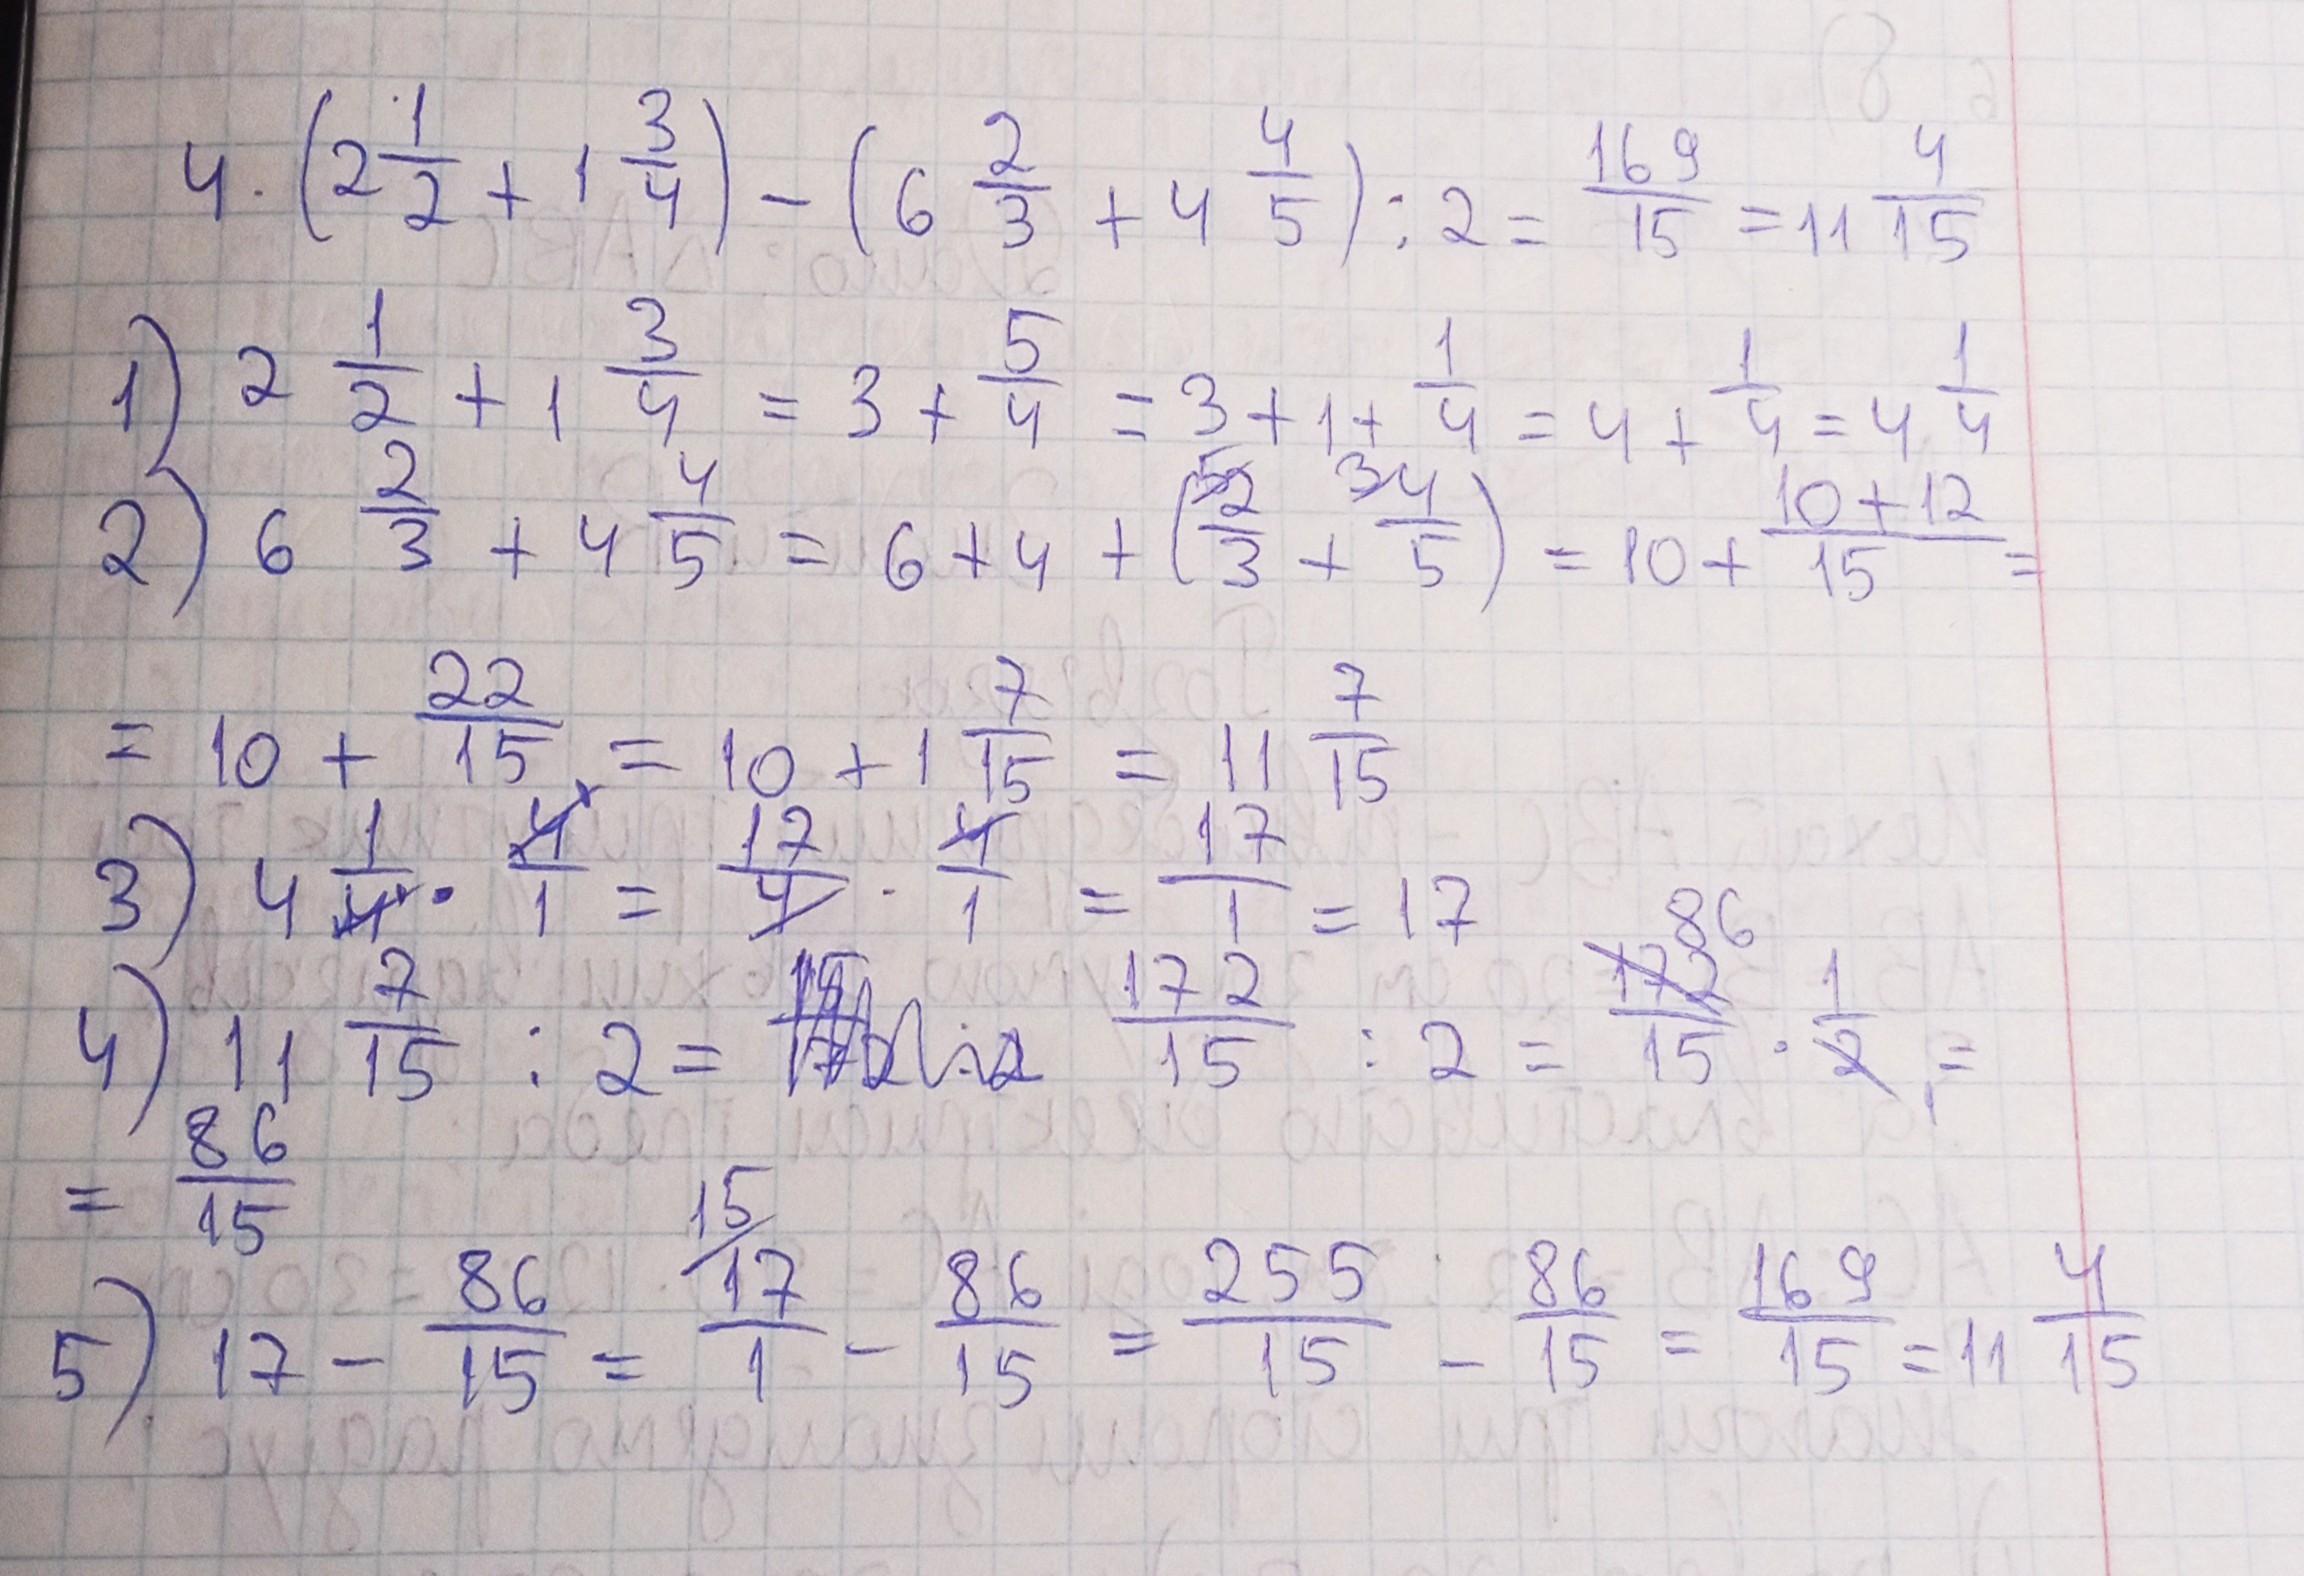 4 · (2 1/2 + 1 3/4) - (6 2/3 + 4 4/5) : 2 = 169/15 = 11 4/15
1) 2 1/2 + 1 3/4 = 3 + 5/4 = 3 + 1 + 1/4 = 4 + 1/4 = 4 1/4
2) 6 2/3 + 4 4/5 = 6 + 4 + (2/3 + 4/5) = 10 + (10 + 12)/15 =
= 10 + 22/15 = 10 + 1 7/15 = 11 7/15
3) 4 1/4 · 4/1 = 17/4 · 4/1 = 17/1 = 17
4) 11 7/15 : 2 = 172/15 : 2 = 172/15 · 1/2 =
= 86/15
5) 17 - 86/15 = 17/1 - 86/15 = 255/15 - 86/15 = 169/15 = 11 4/15